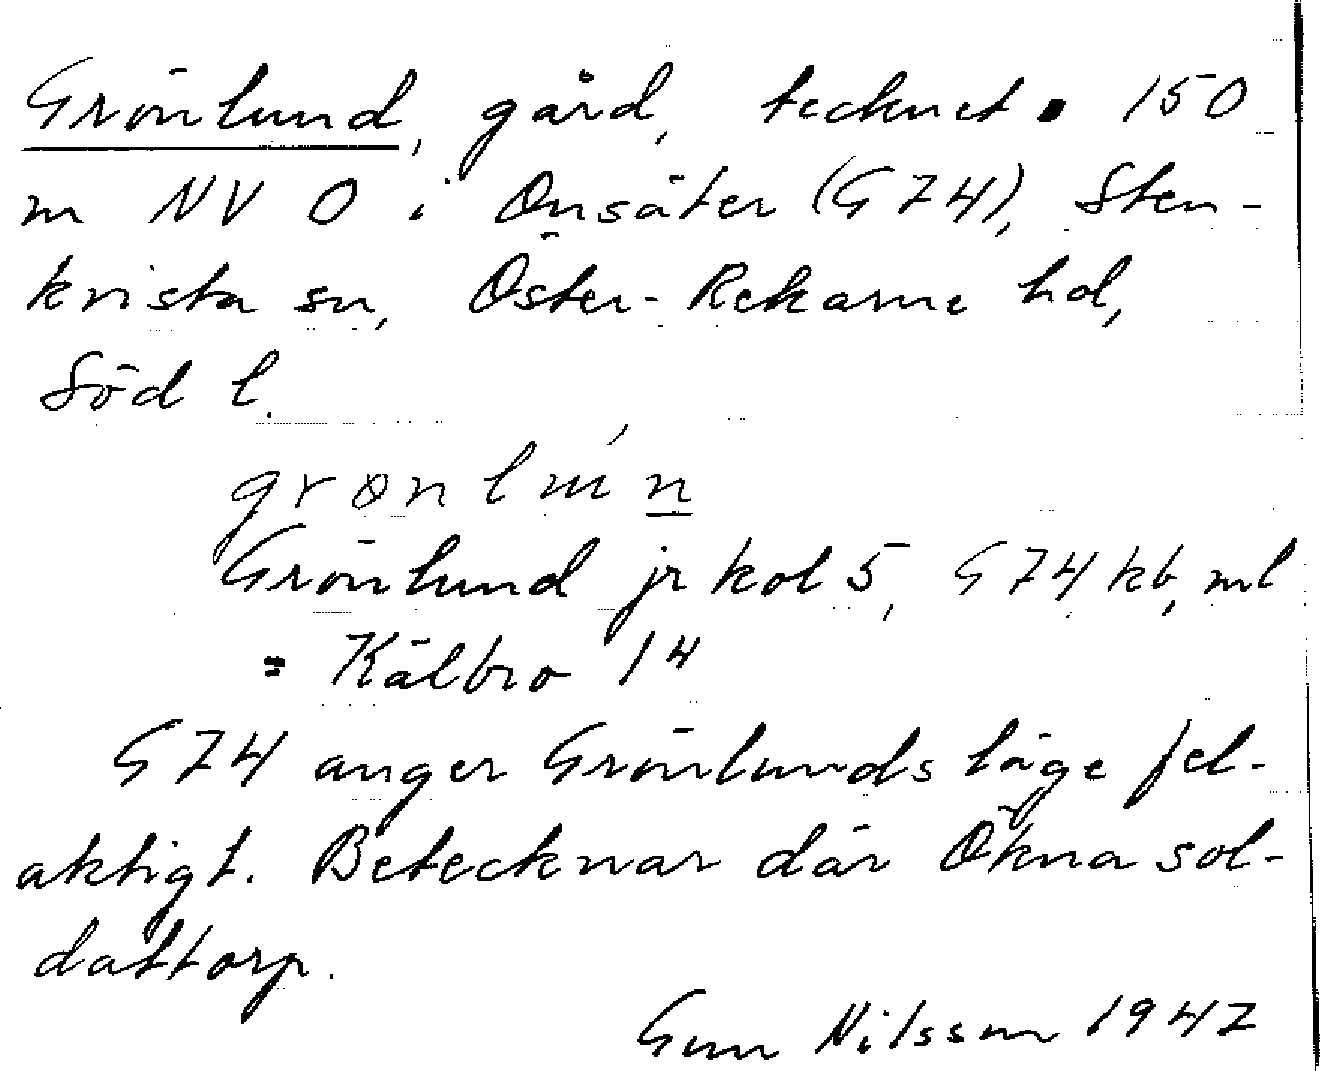 Grönlund, gård, tecknet ▪ 150
m NV O i Onsäter (G 74), Sten-
kvista sn, Öster-Rekarne hd,
Söd l.
Grönlund jr kol 5, G 74 kb, ml
= Kälbro 14
G 74 anger Grönlunds läge fel-
aktigt. Betecknar där Ökna sol-
dattorp.
Gun Nilsson 1947